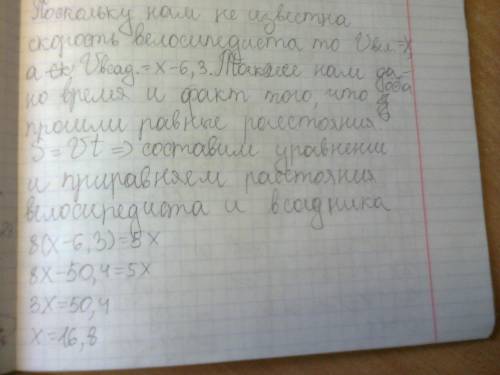 Поскольку нам не известна
скорость велосипедиста то Vвел=х,
а Vвсад.=х-6,3. Также нам да-
но время и факт того, что оба
прошли равные ростояния
S=Vt ⇒ составим уравнение
и приравняем расстояния
велосипедиста и всадника
8(х-6,3)=5х
8х-50,4=5х
3х=50,4
х=16,8